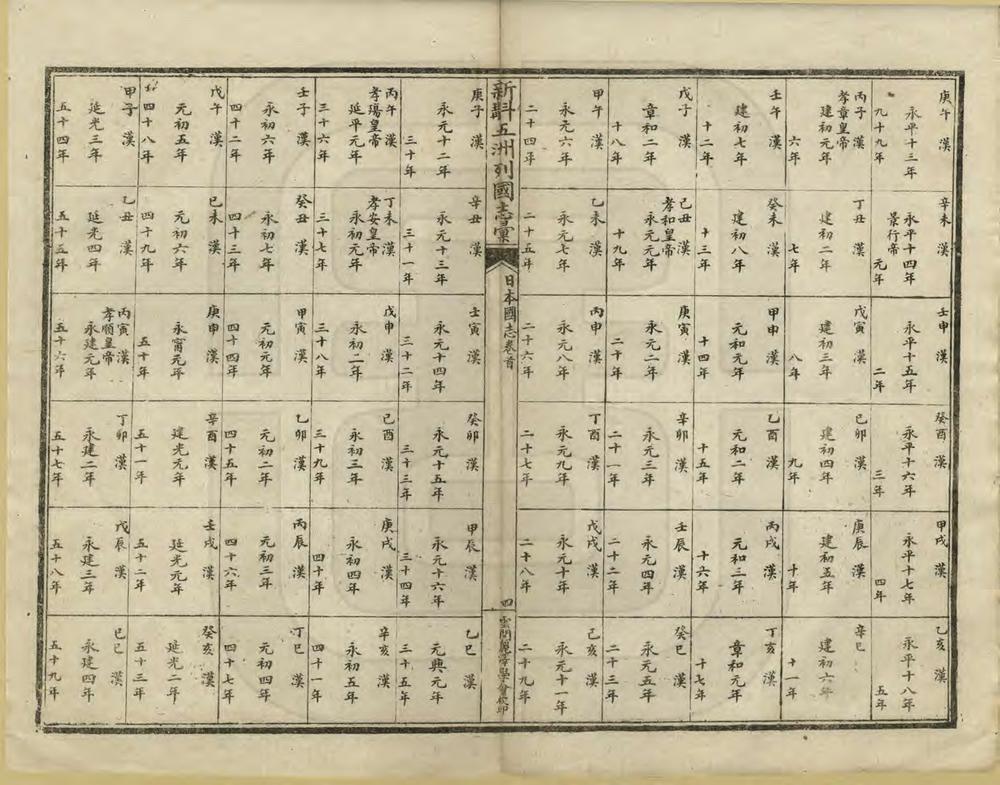 庚午 漢
永平十三年
九十九年
辛未 漢
永平十四年
景行帝 元年
壬申 漢
永平十五年
二年
癸酉 漢
永平十六年
三年
甲戌 漢
永平十七年
四年
乙亥 漢
永平十八年
五年
丙子 漢
孝章皇帝
建初元年
六年
丁丑 漢
建初二年
七年
戊寅 漢
建初三年
八年
己卯 漢
建初四年
九年
庚辰 漢
建初五年
十年
辛巳
建初六年
十一年
壬午 漢
建初七年
十二年
癸未 漢
建初八年
十三年
甲申 漢
元和元年
十四年
乙酉 漢
元和二年
十五年
丙戌 漢
元和三年
十六年
丁亥 漢
章和元年
十七年
戊子 漢
章和二年
十八年
己丑 漢
孝和皇帝
永元元年
十九年
庚寅 漢
永元二年
二十年
辛卯 漢
永元三年
二十一年
壬辰 漢
永元四年
二十二年
癸巳 漢
永元五年
二十三年
甲午 漢
永元六年
二十四年
乙未 漢
永元七年
二十五年
丙申 漢
永元八年
二十六年
丁酉 漢
永元九年
二十七年
戊戌 漢
永元十年
二十八年
己亥 漢
永元十一年
二十九年
新斠五洲列國志彙
日本國志卷首
四
雲間麗澤學會校印
庚子 漢
永元十二年
三十年
辛丑 漢
永元十三年
三十一年
壬寅 漢
永元十四年
三十二年
癸卯 漢
永元十五年
三十三年
甲辰 漢
永元十六年
三十四年
乙巳 漢
元興元年
三十五年
丙午 漢
孝殤皇帝
延平元年
三十六年
丁未 漢
孝安皇帝
永初元年
三十七年
戊申 漢
永初二年
三十八年
己酉 漢
永初三年
三十九年
庚戌 漢
永初四年
四十年
辛亥 漢
永初五年
四十一年
壬子 漢
永初六年
四十二年
癸丑 漢
永初七年
四十三年
甲寅 漢
元初元年
四十四年
乙卯 漢
元初二年
四十五年
丙辰 漢
元初三年
四十六年
丁巳 漢
元初四年
四十七年
戊午 漢
元初五年
四十八年
己未 漢
元初六年
四十九年
庚申 漢
永甯元年
五十年
辛酉 漢
建光元年
五十一年
壬戌 漢
延光元年
五十二年
癸亥 漢
延光二年
五十三年
甲子 漢
延光三年
五十四年
乙丑 漢
延光四年
五十五年
丙寅 漢
孝順皇帝
永建元年
五十六年
丁卯 漢
永建二年
五十七年
戊辰 漢
永建三年
五十八年
己巳 漢
永建四年
五十九年